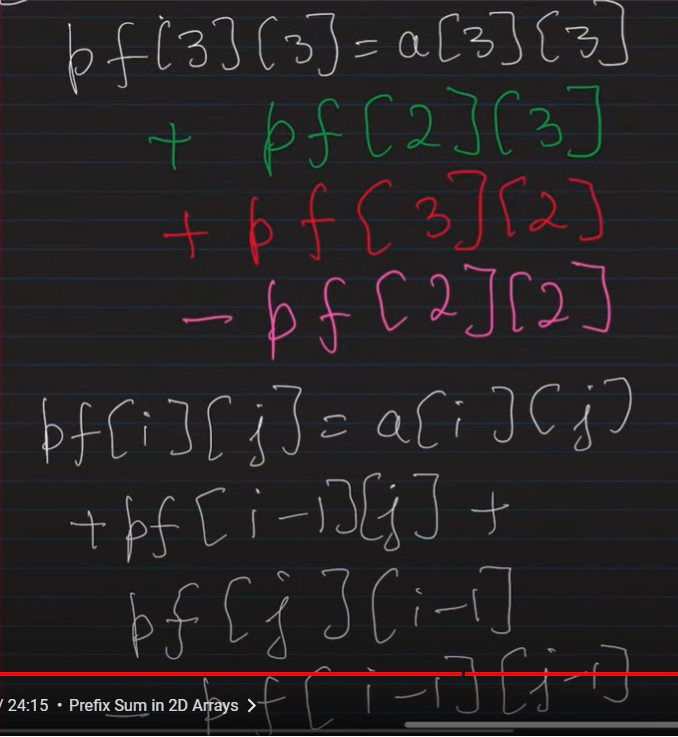 pf[3][3] = a[3][3]
+ pf[2][3]
+ pf[3][2]
- pf[2][2]
pf[i][j] = a[i][j]
+ pf[i-1][j] +
pf[j][i-1]
- pf[i-1][j-1]
/ 24:15 • Prefix Sum in 2D Arrays >